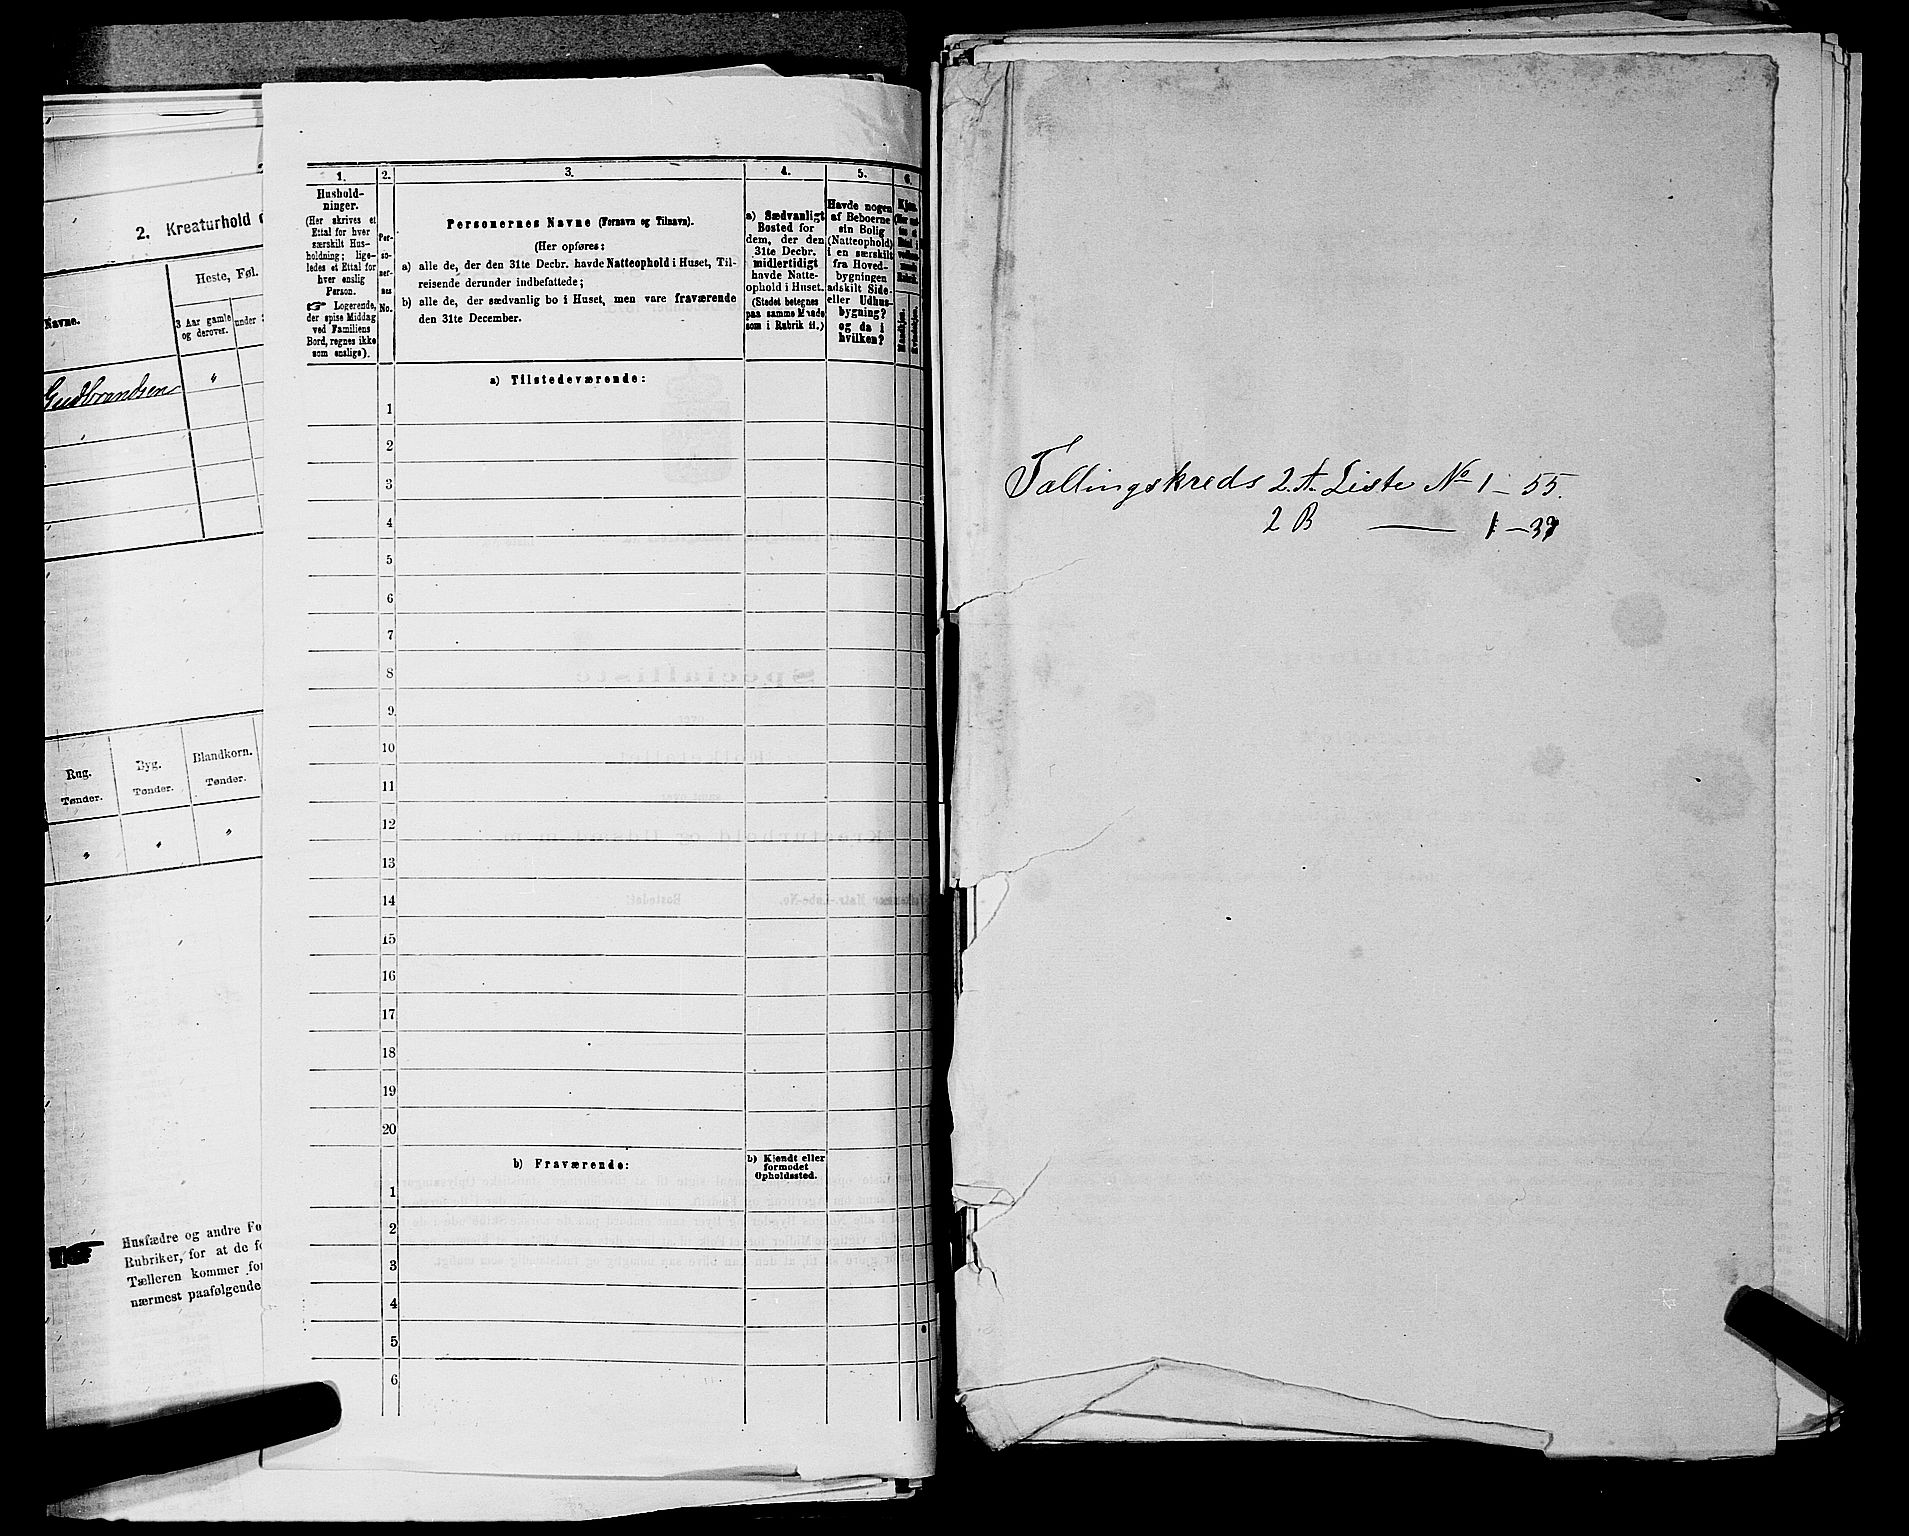 2. Kreaturhold
Heste, Føl.
Navne.
3 Aar gamle og derover.
under
Gudbrandsen
Rug.
Tønder.
Byg.
Tønder.
Blandkorn.
Tønder.
Husfædre og andre Fo
Rubriker, for at de fo
Tælleren kommer for
nærmest paafølgende
1.
Hushold-
ninger.
(Her skrives et
Ettal for hver
særskilt Hus-
holdning; lige-
ledes et Ettal for
hver enslig
Person.
Logerende,
der spise Middag
ved Familiens
Bord, regnes ikke
som enslige).
2.
Per-
so-
ner-
nes
No.
3.
Personernes Navne (Fornavn og Tilnavn).
(Her opføres:
a) alle de, der den 31te Decbr. havde Natteophold i Huset, Til-
reisende derunder indbefattede;
b) alle de, der sædvanlig bo i Huset, men vare fraværende
den 31te December.
4.
a) Sædvanligt
Bosted for
dem, der den
31te Decbr.
midlertidigt
havde Natte-
ophold i Huset.
(Stedet betegnes
paa samme Maade
som i Rubrik 11.)
5.
Havde nogen
af Beboerne
sin Bolig
(Natteophold)
i en særskilt
fra Hoved-
bygningen
adskilt Side-
eller Udhus-
bygning?
og da i
hvilken?
6.
Kjøn.
Mandkjøn.
Kvindekjøn.
a) Tilstedeværende:
1
2
3
4
5
6
7
8
9
10
11
12
13
14
15
16
17
18
19
20
b) Fraværende:
b) Kjendt eller
formodet
Opholdssted.
1
2
3
4
5
6
Tællingskreds 2.A. Liste No 1 – 55.
2 B — 1 – 37